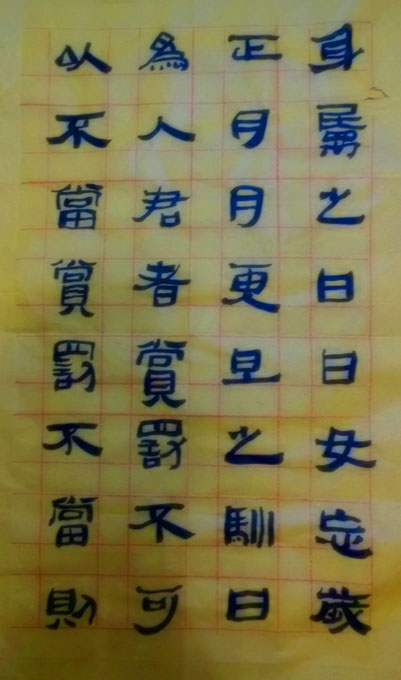 身屬之日日女忘歲
正月月更旦之馴日
為人君者賞罰不可
以不當賞罰不當則